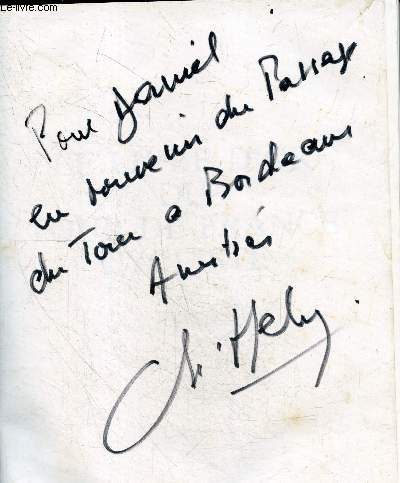 Le-livre.com
Pour Daniel
en souvenir du Passage
du Tour a Bordeaux
Amitiés